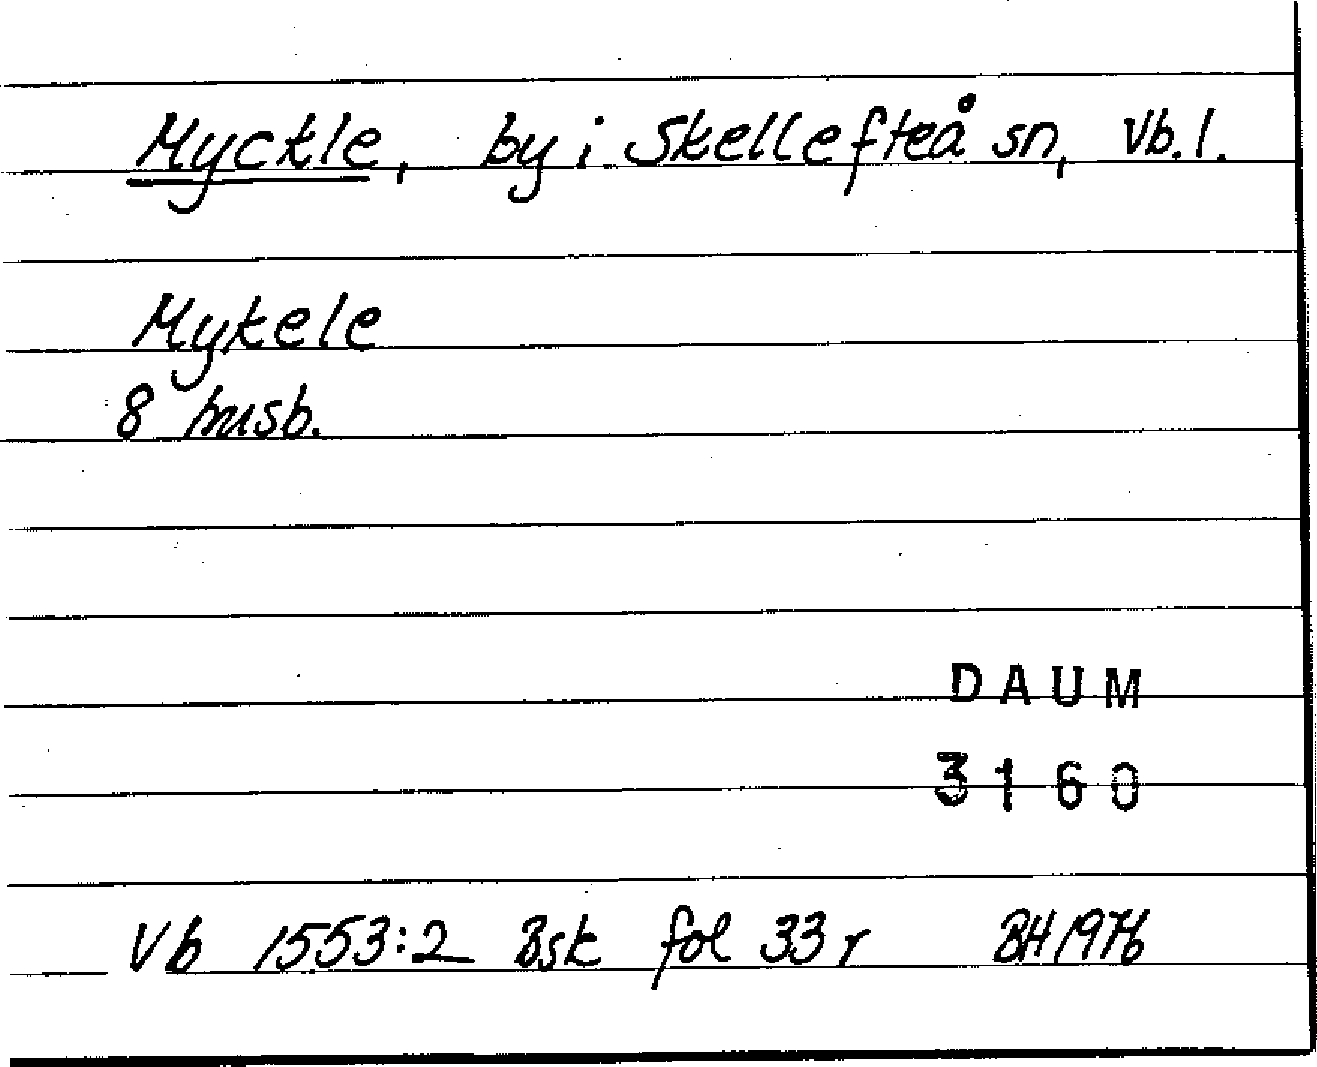 Myckle, by i Skellefteå sn, Vb. l.
Mykele
8 husb.
DAUM
3160
Vb 1553:2 Bsk fol 33 r BH 1976